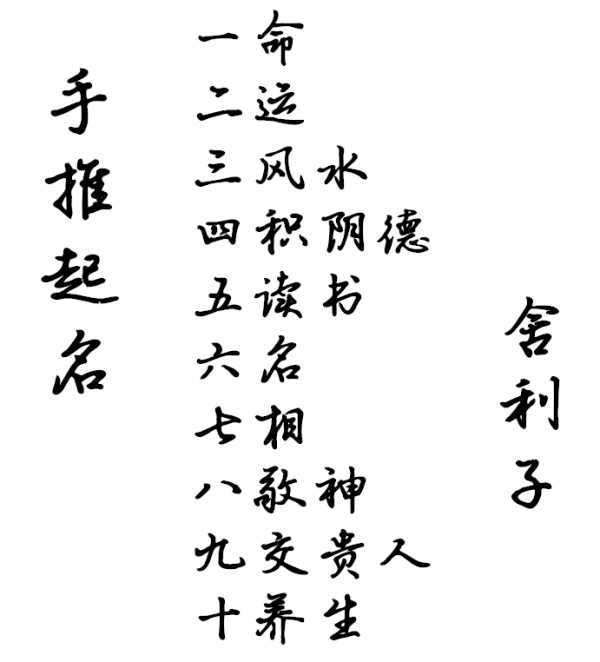 手推起名
一命
二运
三风水
四积阴德
五读书
六名
七相
八敬神
九交贵人
十养生
舍利子